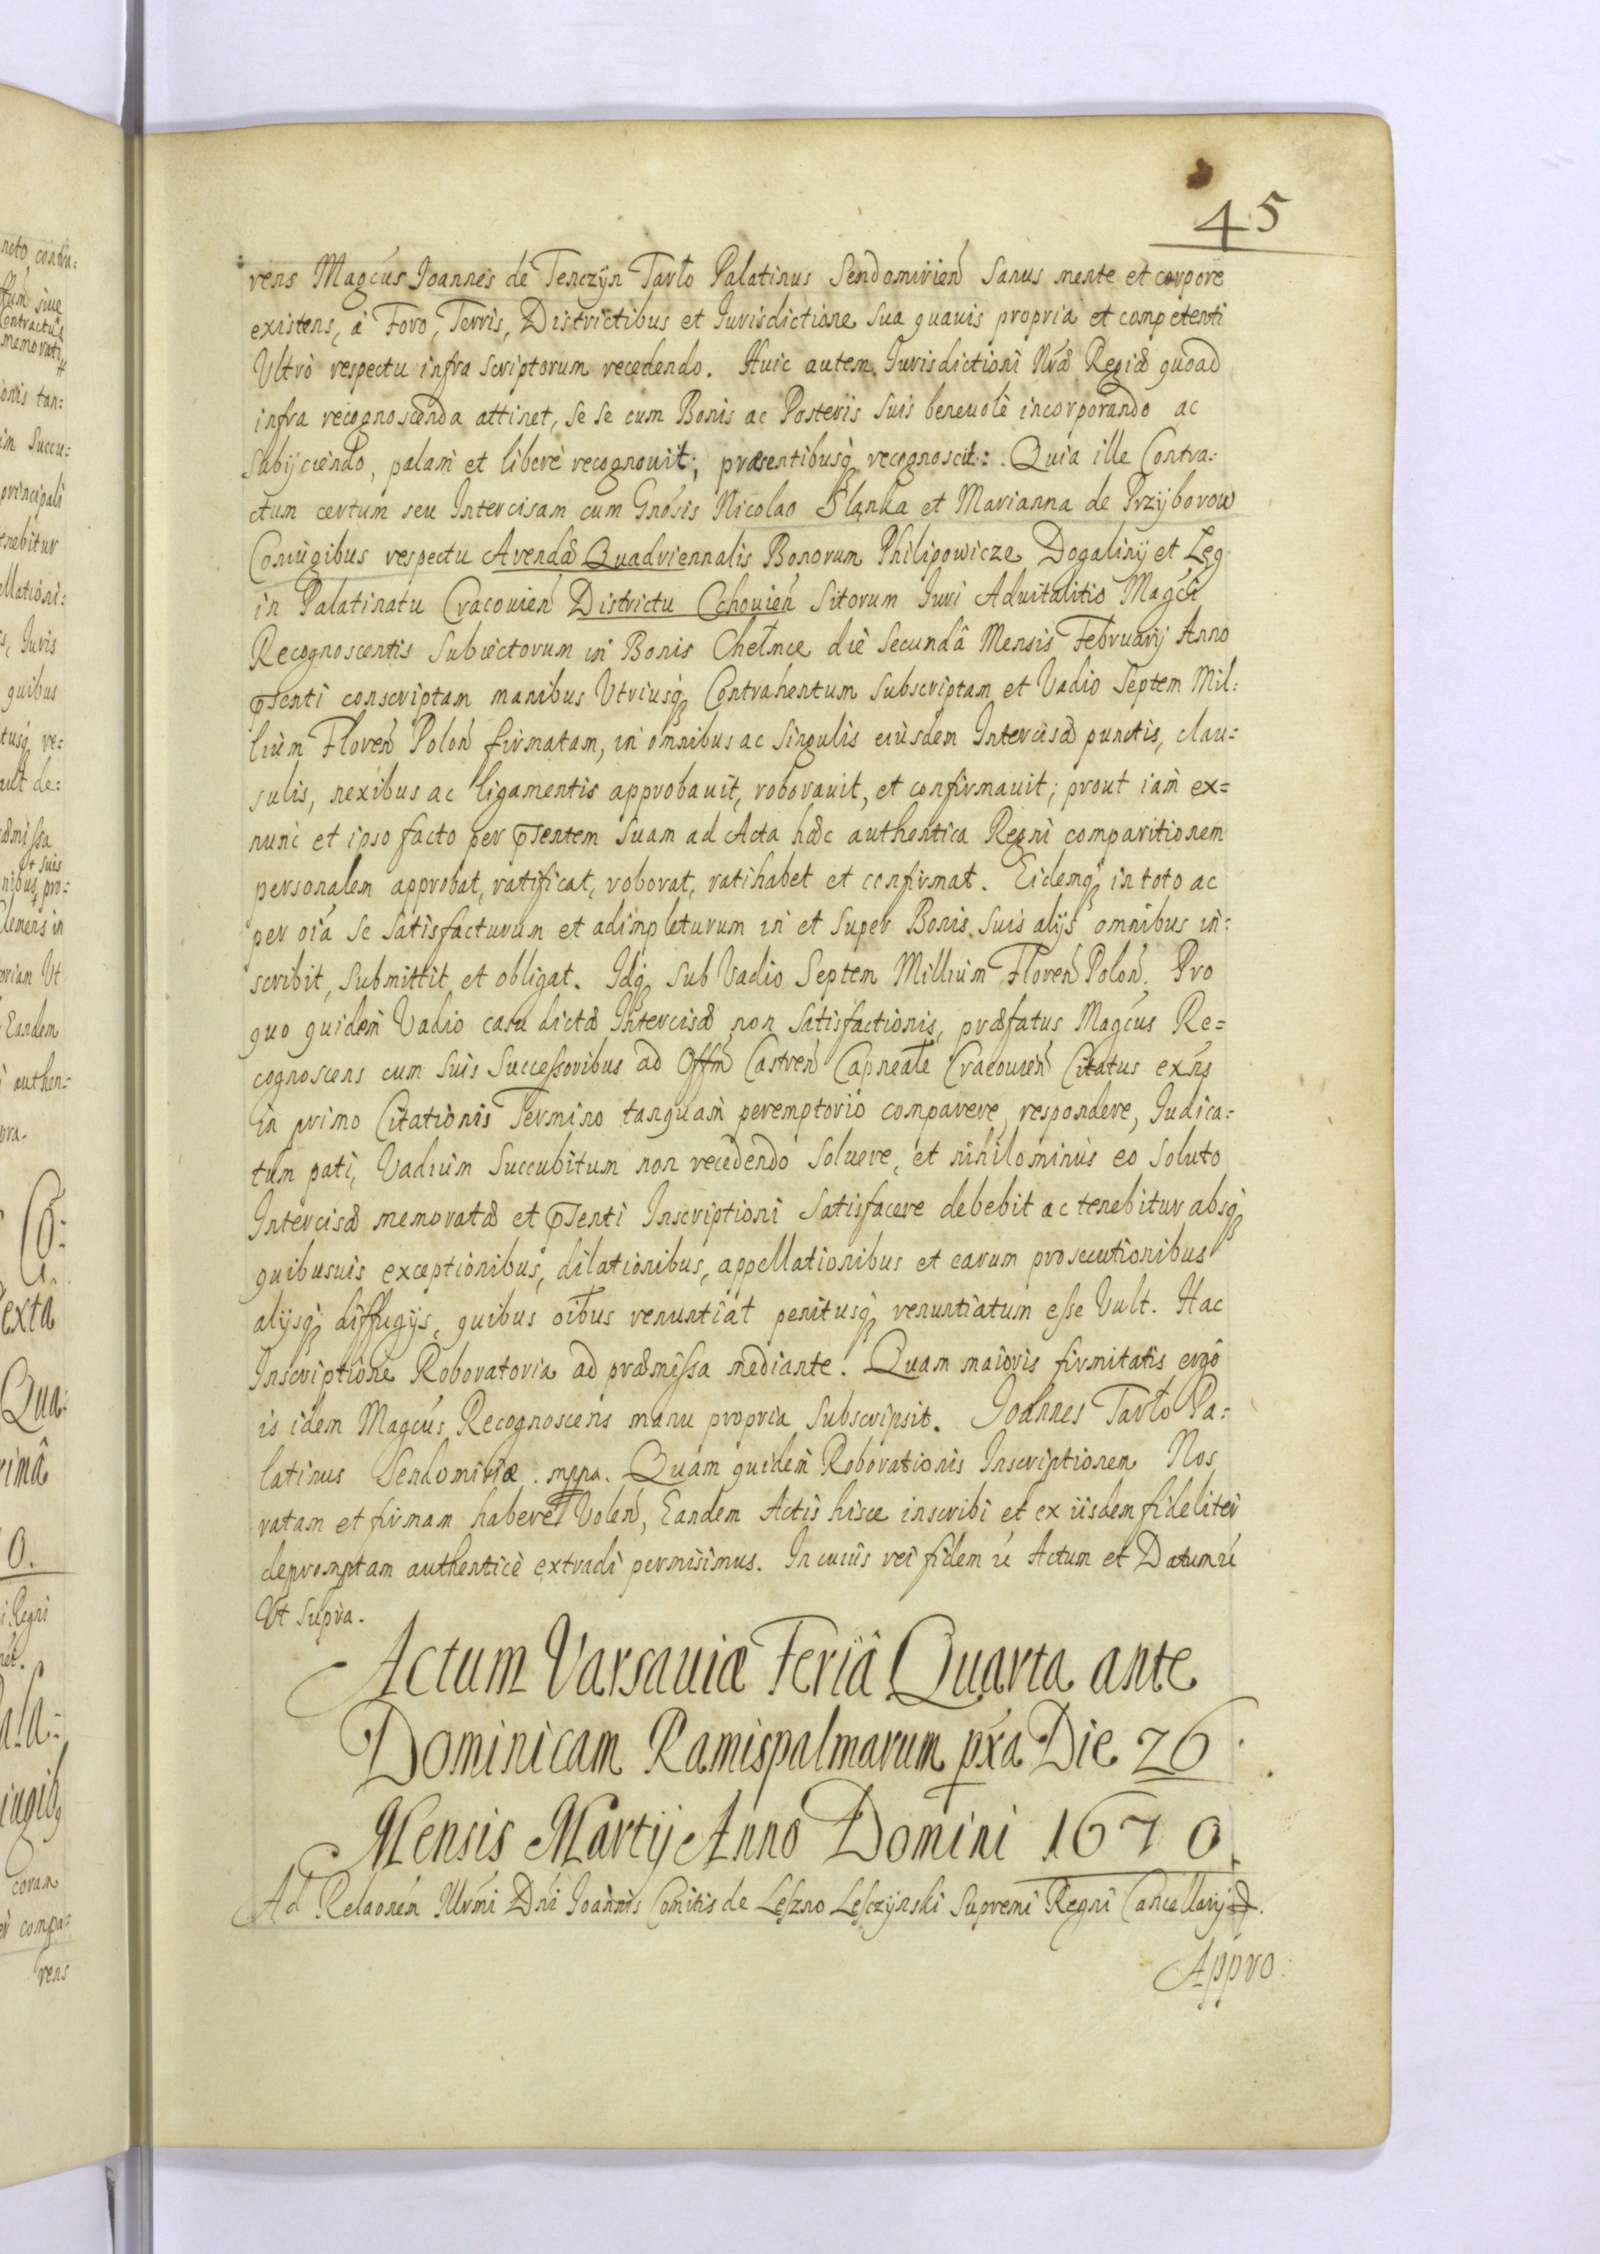 45
rens Magcus Joannes de Tenczyn Tarło Palatinus Sendomirien̄ Sanus mente et corpore
existens, á Foro, Terris, Districtibus et Jurisdictione Sua quavis propria et competenti
Ultrò respectu infra scriptorum recedendo. Huic autem Jurisdictioni Nr̄æ Regiæ quoad
infra recognoscenda attinet, Se Se cum Bonis ac Posteris Suis benevolè incorporando ac
Subijciendo, palam et liberè recognouit; præsentibusq; recognoscit: Quia ille Contra:
ctum certum seu Intercisam cum Gnosis Nicolao Slanka et Marianna de Przyborow
Coniugibus respectu Arendæ Quadriennalis Bonorum Philipowicze Dogaliny et Leg
in Palatinatu Cracouien̄ Districtu Cchouien̄ Sitorum Juri Aduitalitio Magci
Recognoscentis Subiectorum in Bonis Chełmce die Secundâ Mensis Februarij Anno
pn̄ti conscriptam manibus Utriusq; Contrahentum Subscriptam et Vadio Septem Mil:
lium Floren̄ Polon̄ firmatam, in omnibus ac Singulis eiusdem Intercisæ punctis, clau:
sulis, nexibus ac ligamentis approbauit, roborauit, et confirmauit; prout iam ex=
nunc et ipso facto per pn̄tem Suam ad Acta hæc authentica Regni comparitionem
personalem approbat, ratificat, roborat, ratihabet et confirmat. Eidemq; in toto ac
per oīa Se Satisfacturum et adimpleturum in et Super Bonis Suis alijs omnibus in:
scribit, Submittit et obligat. Idq; Sub Vadio Septem Millium Floren̄ Polon̄. Pro
quo quidem Vadio casu dictæ Intercisæ non Satisfactionis, præfatus Magcus Re=
cognoscens cum Suis Successoribus ad Offm̄ Castren̄ Capneale Cracouien̄ Citatus exn̄s
in primo Citationis Termino tanquam peremptorio comparere, respondere, Judica:
tum pati, Vadium Succubitum non recedendo Soluere, et nihilominus eo Soluto
Intercisæ memoratæ et pn̄ti Inscriptioni Satisfacere debebit ac tenebitur absq;
quibusuis exceptionibus, dilationibus, appellationibus et earum prosecutionibus
alijsq; diffugijs, quibus oībus renuntiat penitusq; renuntiatum esse Vult. Hac
Inscriptione Roboratoria ad præmissa mediante. Quam maioris firmitatis ergô
is idem Magcus Recognoscens manu propria Subscripsit. Joannes Tarło Pa:
latinus Sendomiriæ. mppa. Quam quidem Roborationis Inscriptionem Nos
ratam et firmam habere Volen̄, Eandem Actis hisce inscribi et ex iisdem fideliter
depromptam authenticè extradi permisimus. In cuius rei fidem &c Actum et Datum &c
Ut Supra.
Actum Varsauiæ Feriâ Quarta ante
Dominicam Ramispalmarum px̄a Die 26
Mensis Martij Anno Domini 1670.
Ad Relaonem Illrmi Dn̄i Joannis Comitis de Leszno Lesczynski Supremi Regni Cancellarij.
Appro: